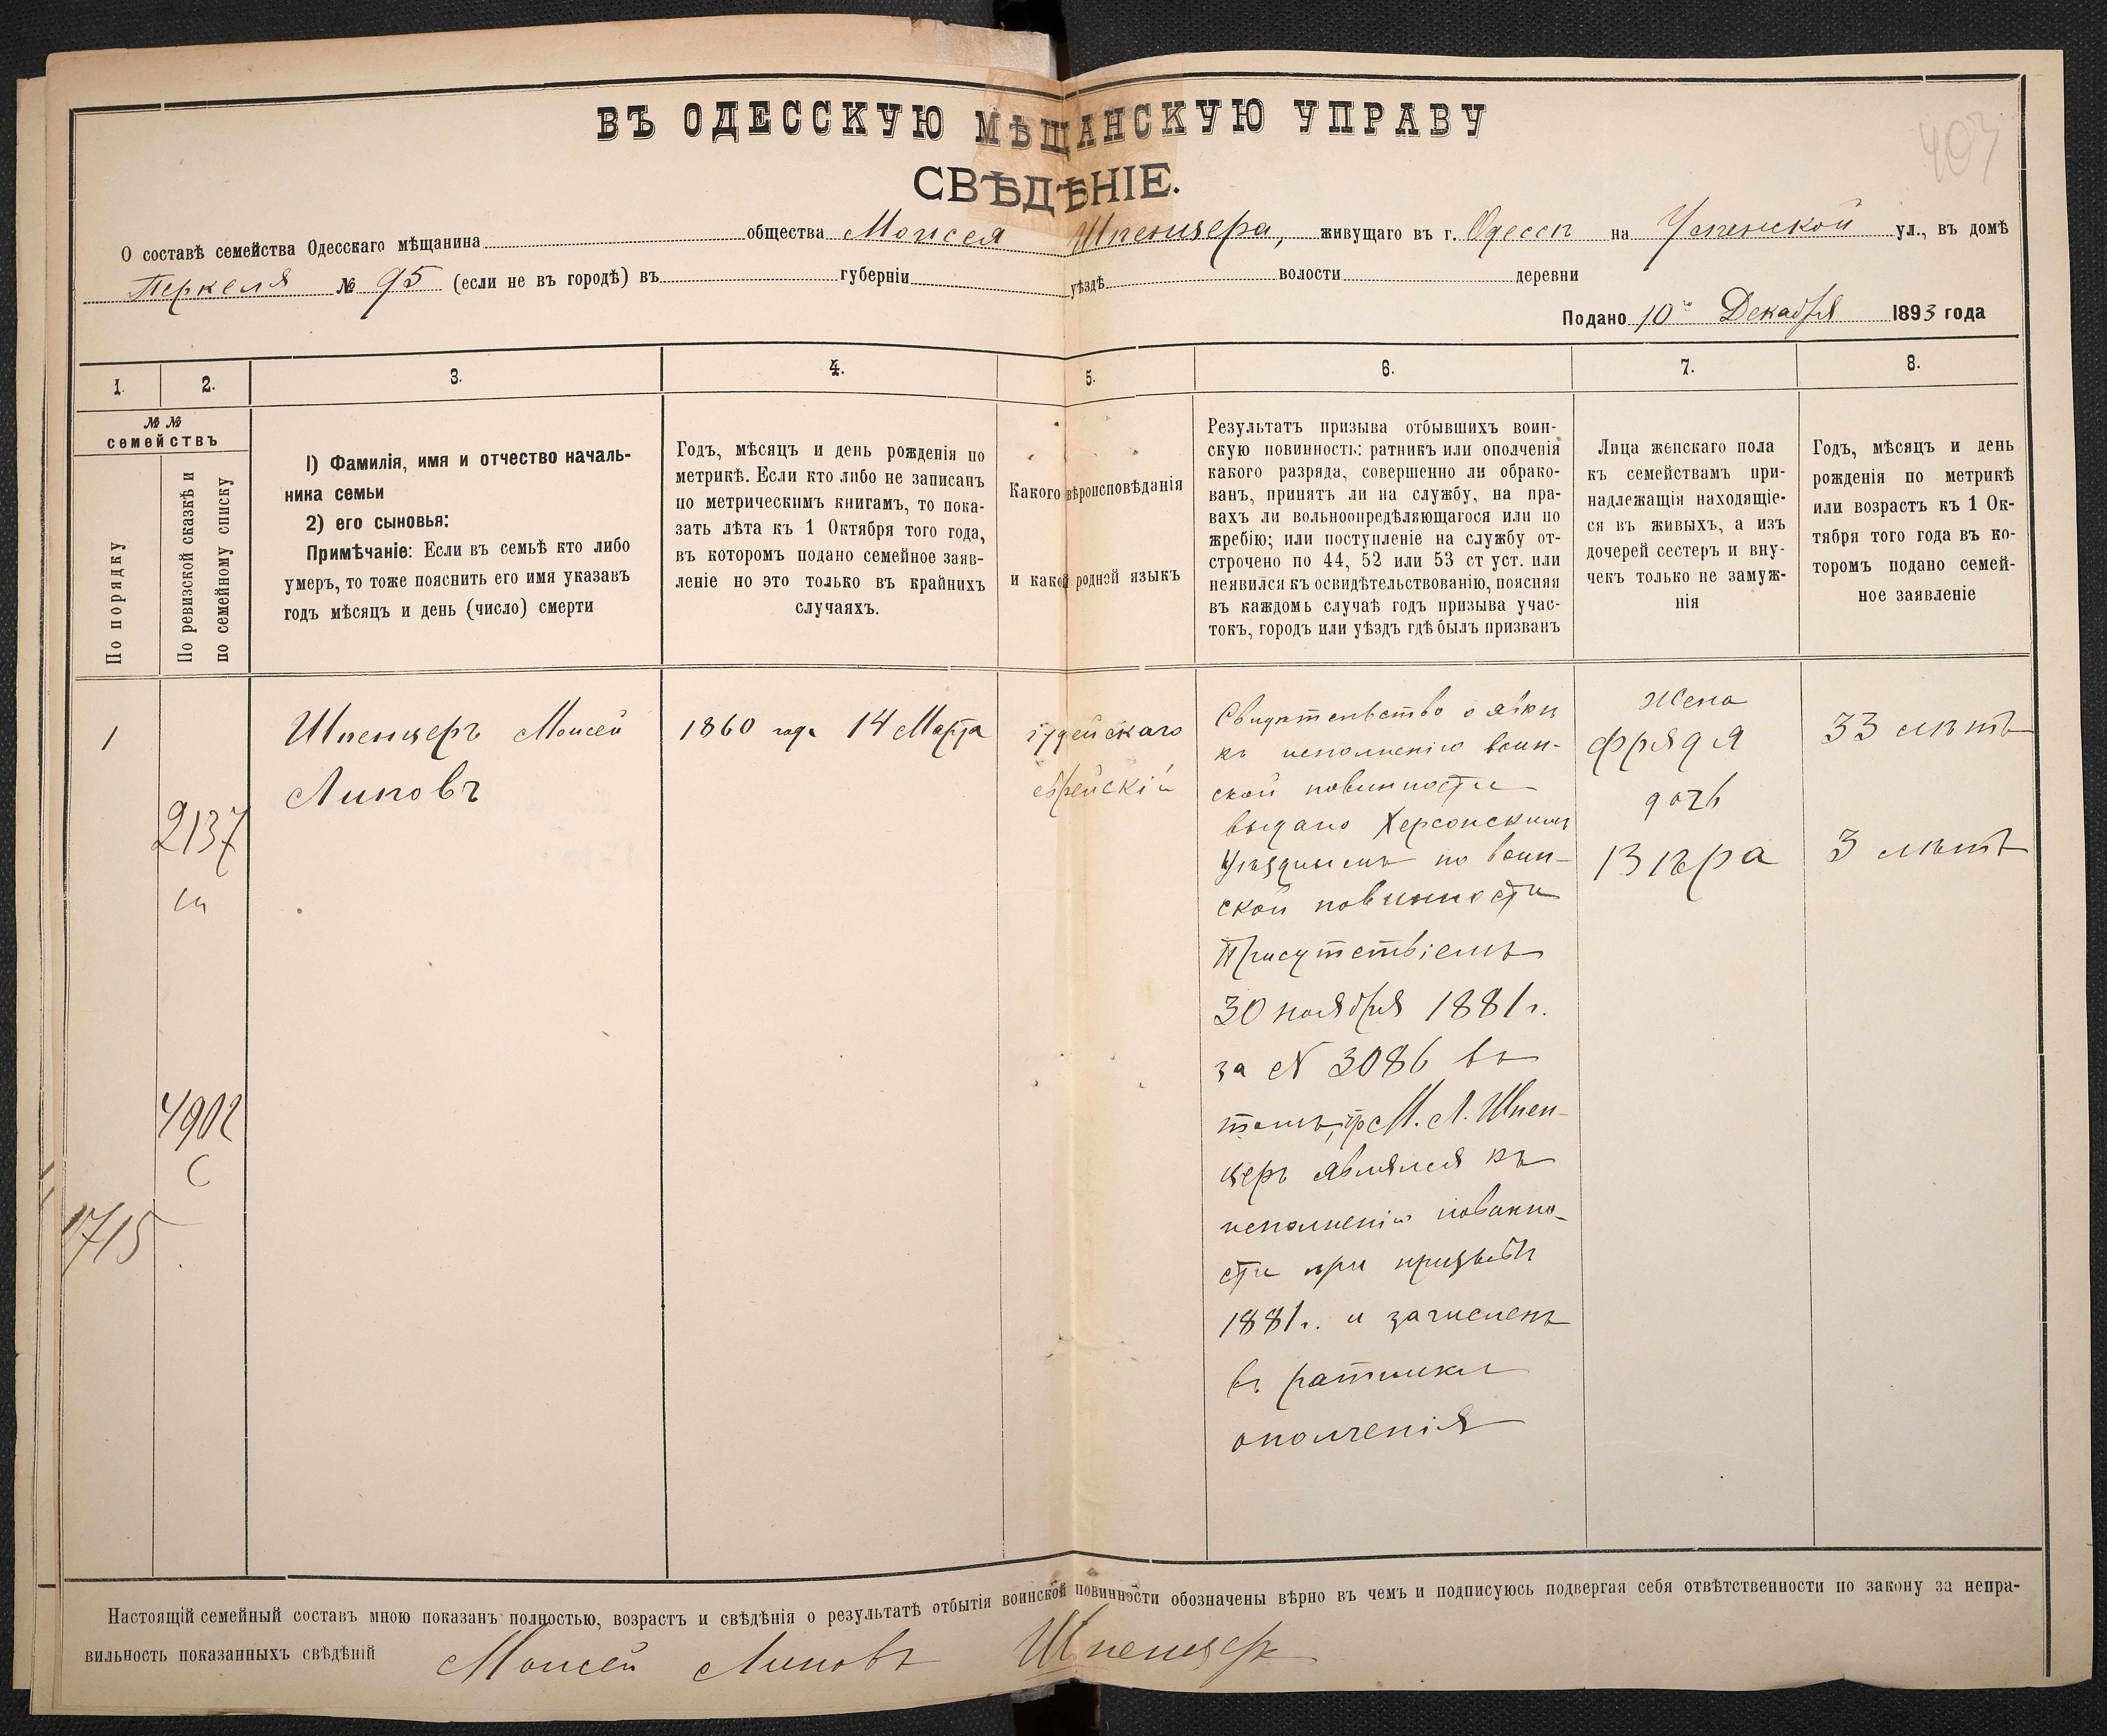 403
ВЪ ОДЕССКУЮ МѢЩАНСКУЮ УПРАВУ
СВѢДѢНІЕ.
О составѣ семейства Одесскаго мѣщанина общества Моисея Шпенцера, живущаго въ г. Одессѣ на Успенской ул., въ домѣ
Перкеля № 95 (если не въ городѣ) въ губерніи уѣздѣ волости деревни
Подано 10го Декабря 1893 года
1.
2.
3.
4.
5.
6.
7.
8.
№ №
семействъ
По порядку
По ревизской сказкѣ и
по семейному списку
1) Фамилія, имя и отчество началь-
ника семьи
2) его сыновья:
Примѣчаніе: Если въ семьѣ кто либо
умеръ, то тоже пояснить его имя указавъ
годъ мѣсяцъ и день (число) смерти
Годъ, мѣсяцъ и день рожденія по
метрикѣ. Если кто либо не записанъ
по метрическимъ книгамъ, то пока-
зать лѣта къ 1 Октября того года,
въ которомъ подано семейное заяв-
леніе но это только въ крайнихъ
случаяхъ.
Какого вѣроисповѣданія
и какой родной языкъ
Результатъ призыва отбывшихъ воин-
скую повинность: ратникъ или ополченія
какого разряда, совершенно ли обрако-
ванъ, принятъ ли на службу, на пра-
вахъ ли вольноопредѣляющагося или по
жребію; или поступленіе на службу от-
строчено по 44, 52 или 53 ст уст. или
неявился къ освидѣтельствованію, поясняя
въ каждомъ случаѣ годъ призыва учас-
токъ, городъ или уѣздъ гдѣ былъ призванъ
Лица женскаго пола
къ семействамъ при-
надлежащія находящіе-
ся въ живыхъ, а изъ
дочерей сестеръ и вну-
чекъ только не замуж-
нія
Годъ, мѣсяцъ и день
рожденія по метрикѣ
или возрастъ къ 1 Ок-
тября того года въ ко-
торомъ подано семей-
ное заявленіе
1
2137
4902
С
1715
Шпенцеръ Моисей
Липовъ
1860 года 14 Марта
іудейскаго
еврейскій
Свидѣтельство о явкѣ
къ исполненію воин-
ской повинности
выдано Херсонскимъ
Уѣзднымъ по воин-
ской повинности
Присутствіемъ
30 ноября 1881 г.
за № 3086 въ
томъ, что М. Л. Шпен-
церъ являлся къ
исполненію повинно-
сти при призывѣ
1881 г. и зачисленъ
въ ратники
ополченія
Жена
Фрядя
дочь
33 лѣтъ
3 лѣтъ
Настоящій семейный составъ мною показанъ полностью, возрастъ и свѣдѣнія о результатѣ отбытія воинской повинности обозначены вѣрно въ чемъ и подписуюсь подвергая себя отвѣтственности по закону за непра-
вильность показанныхъ свѣдѣній Моисей Липовъ Шпенцеръ